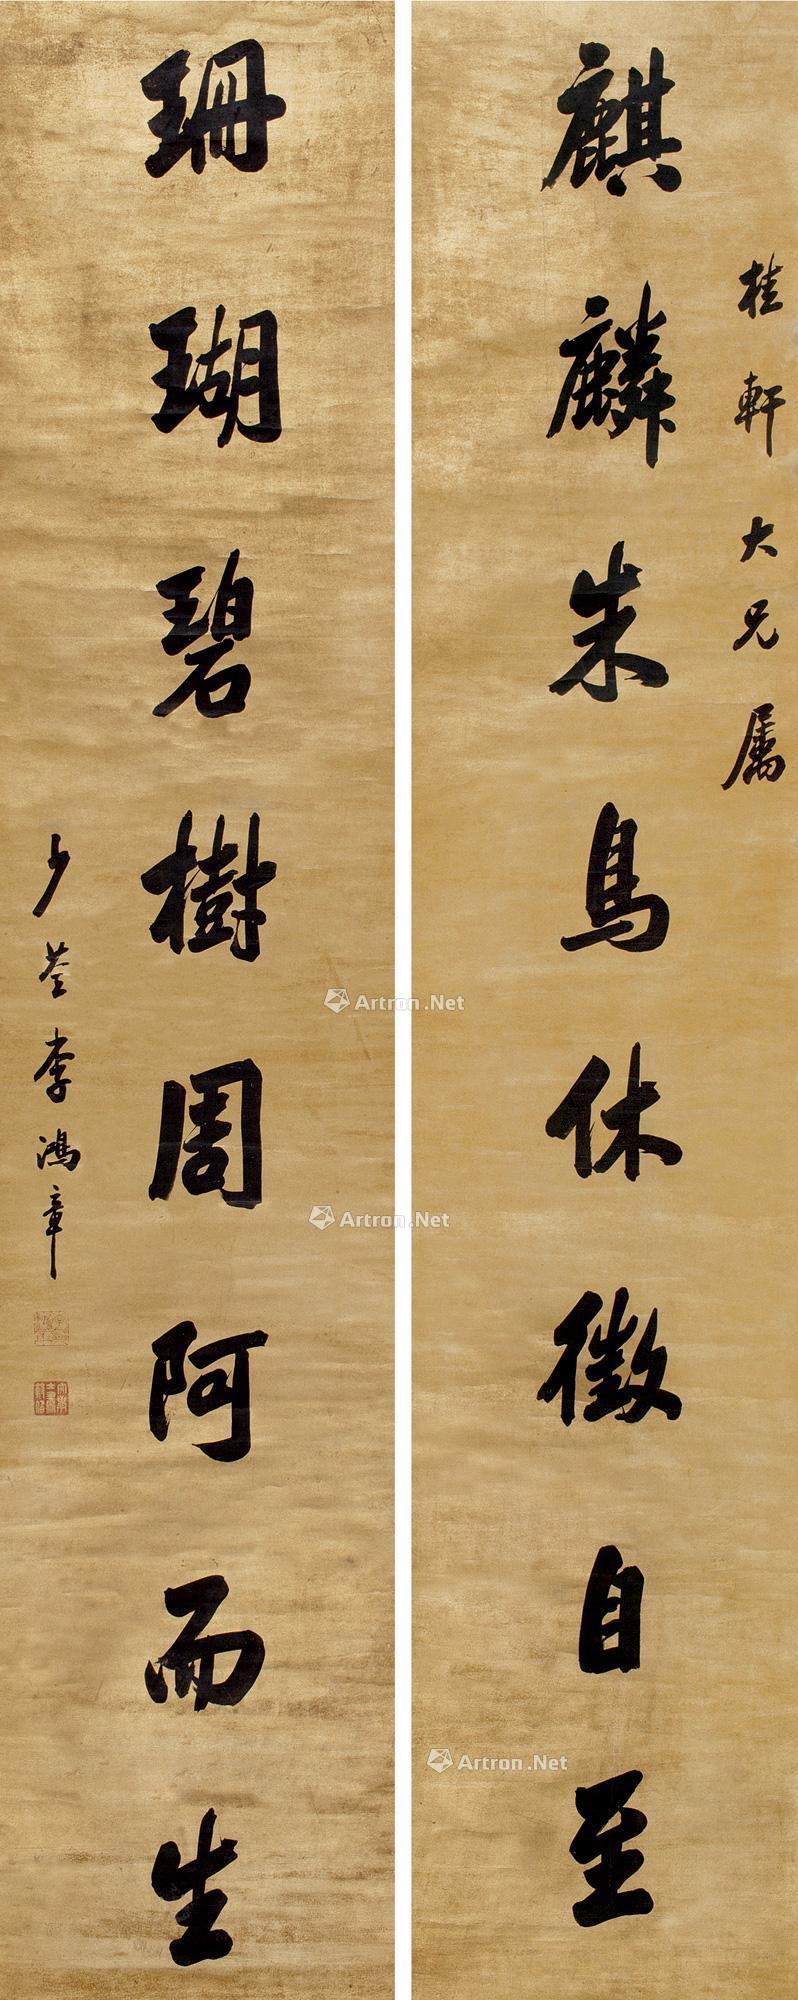 桂軒大兄属
麒麟朱鳥休徵自至
珊瑚碧樹周阿而生
少荃李鴻章
Artron.Net
Artron.Net
Artron.Net